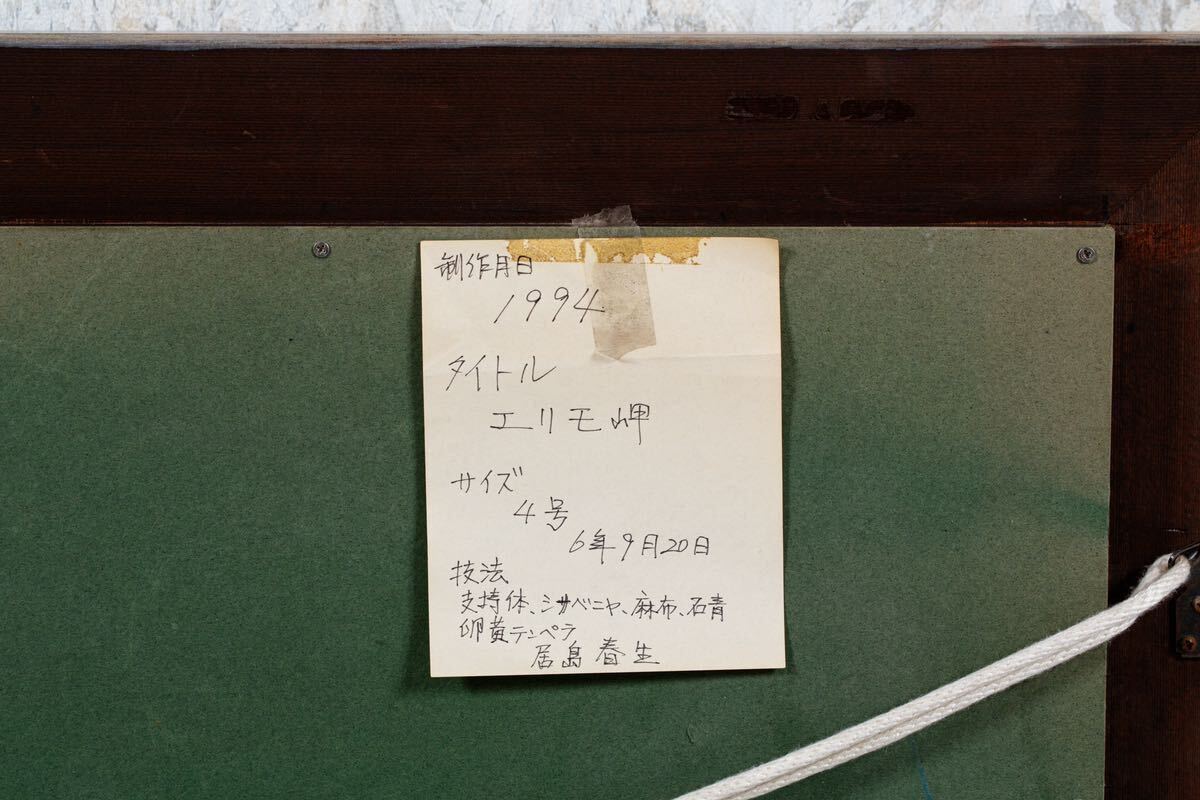 制作月日
1994
タイトル
エリモ岬
サイズ
4号
6年9月20日
技法
支持体、シナベニヤ、麻布、石膏
卵黄テンペラ
居島春生